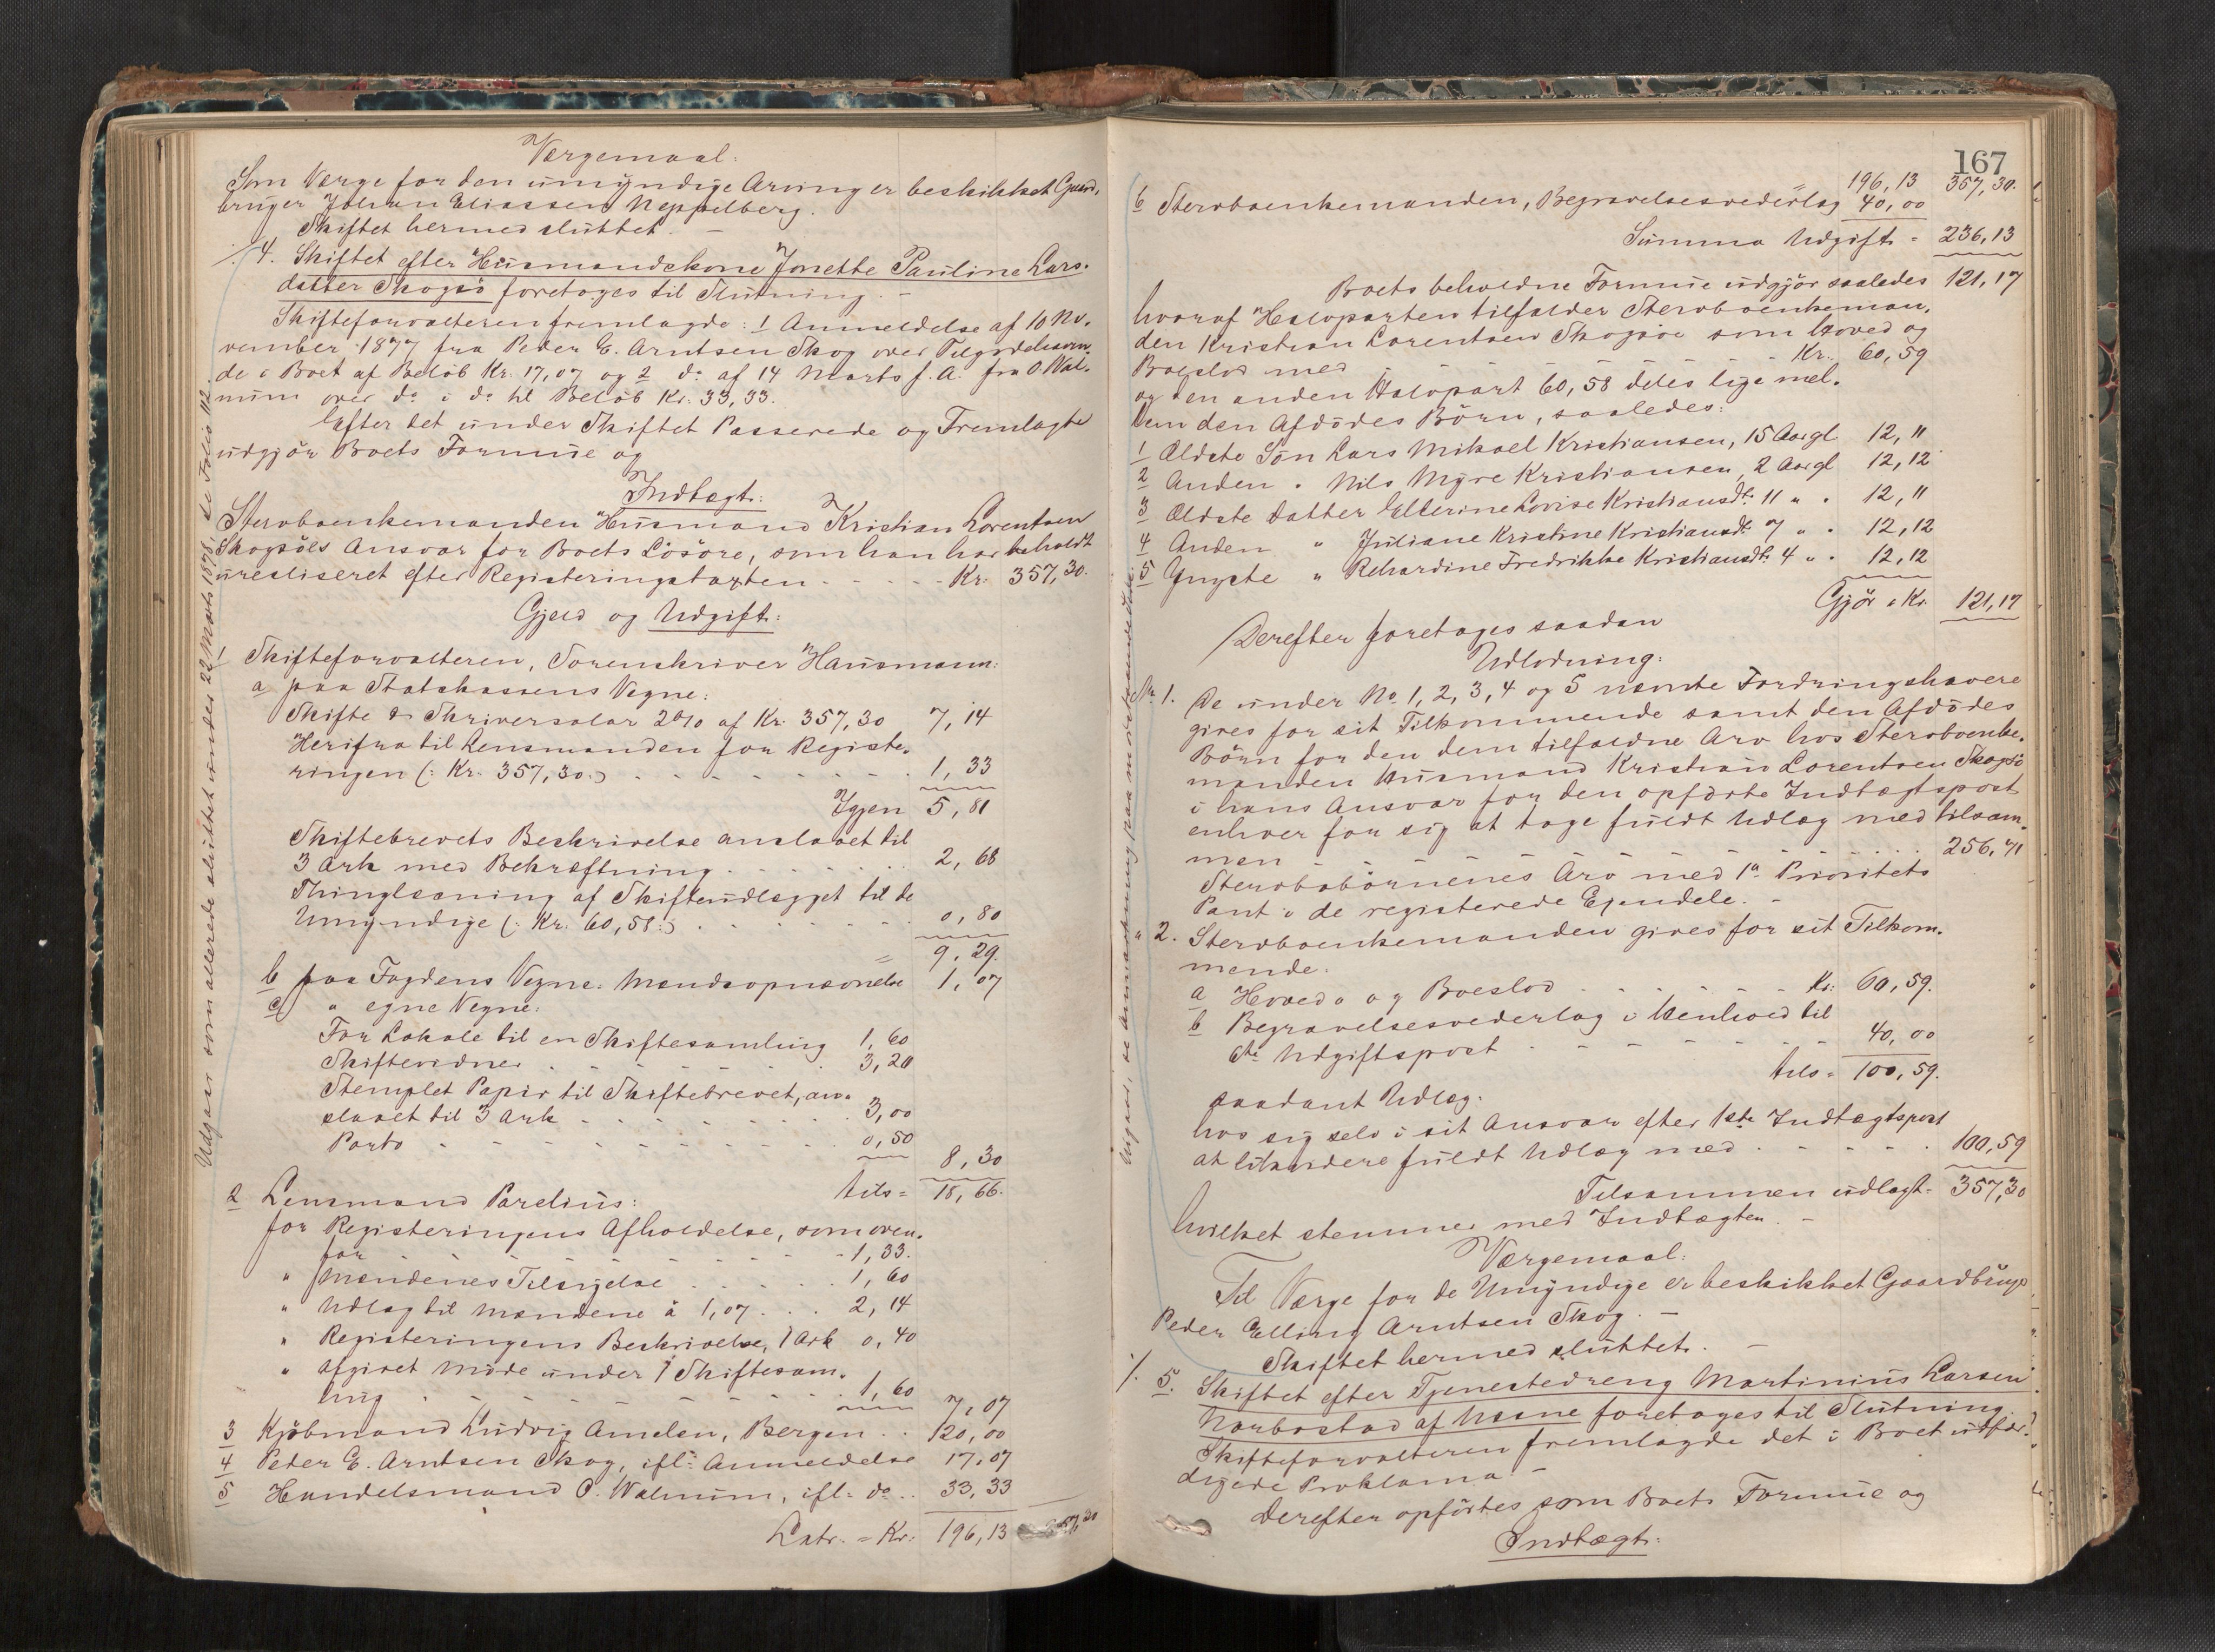 Værgemaal:
Som Værge for den umyndige Arving er beskikket Gaard-
bruger Johan Eliassen Neppelberg.
Skiftet hermed sluttet. —
4. Skiftet efter Husmandskone Jonette Pauline Lars-
datter Skogsö foretages til Slutning. —
Skifteforvalteren fremlagde: 1 Anmeldelse af 10 No-
vember 1877 fra Peder E. Arntsen Skog over Tilgodehaven-
de i Boet af Beløb Kr. 17,07 og 2 do af 14 Marts f. A. fra O. Wal-
num over do i do til Beløb Kr. 33,33.
Efter det under Skiftet Passerede og Fremlagte
udgjör Boets Formue og
Indtægt:
Stervboenkemanden Husmand Kristian Lorentsen
Skogsöes Ansvar for Boets Lösöre, som han har beholdt
urealiseret efter Registeringstaxten - - - - - Kr. 357,30.
Gjeld og Udgift:
1 Skifteforvalteren, Sorenskriver Hausmann:
a paa Statskassens Vegne:
Skifte & Skriversalar 2% af Kr. 357,30 7,14
Herifra til Lensmanden for Registe-
ringen (: Kr. 357,30:) - - - - - - - 1,33
Igjen 5,81
Skiftebrevets Beskrivelse anslaaet til
3 Ark med Bekræftning - - - - - 2,68
Thinglæsning af Skifteudlægget til de
Umyndige (: Kr. 60,58:) - - - - - 0,80
= 9,29.
b paa Fogdens Vegne: Mandsopnævnelse 1,07
c " egne Vegne:
For Lokale til en Skiftesamling 1,60
Skiftevidner - - - - - - 3,20
Stemplet Papir til Skiftebrevet, an-
slaaet til 3 Ark - - - - - - 3,00
Porto - - - - - - - - 0,50
8,30
tils = 18,66.
2 Lensmand Parelius:
for Registeringens Afholdelse, som oven-
for - - - - - - - - 1,33.
" Mændenes Tilsigelse - - - - - 1,60
" Udlæg til Mændene à 1,07 - - - 2,14
" Registeringens Beskrivelse, 1 Ark 0,40
" Afgivet Möde under 1 Skiftesam-
ling - - - - - - - 1,60
7,07
3 Kjöbmand Ludvig Amelen, Bergen - - 120,00
4 Peder E. Arntsen Skog, ifl: Anmeldelse 17,07
5 Handelsmand O. Walnum, ifl: do - - 33,33
Latr. = Kr: 196,13 357,30
Udgaar som allerede sluttet under 22 Marts 1878, se Folio 112.
167
196,13 357,30.
6 Stervboenkemanden, Begravelsesvederlag 40,00
Summa Udgift = 236,13
Boets beholdne Formue udgjör saaledes 121,17
hvoraf Halvparten tilfalder Stervboenkeman-
den Kristian Lorentsen Skogsöe som Hoved og
Boeslod med - - - - - - - Kr. 60,59
og den anden Halvpart 60,58 deles lige mel-
lem den Afdödes Börn, saaledes:
1 Ældste Sön Lars Mikael Kristiansen, 15 Aar gl 12,11
2 Anden " Nils Myre Kristiansen 2 Aar gl 12,12
3 Ældste Datter Ellerine Lovise Kristiansdtr 11 " " 12,11
4 Anden " Juliane Kristine Kristiansdtr 7 " " 12,12
5 Yngste " Rikardine Fredrikke Kristiansdtr 4 " " 12,12
Gjör = Kr. 121,17
Derefter foretages saadan
Udlodning:
No 1. De under No 1, 2, 3, 4 og 5 nævnte Fordringshavere
gives for sit Tilkommende samt den Afdödes
Börn for den dem tilfaldne Arv hos Stervboenke-
manden Husmand Kristian Lorentsen Skogsö
i hans Ansvar for den opförte Indtægtspost
enhver for sig at tage fuldt Udlæg med tilsam-
men - - - - - - - - - 256,71
Stervbobörnenes Arv med 1a Prioritets
Pant i de registerede Ejendele. —
" 2. Stervboenkemanden gives for sit Tilkom-
mende:
a Hoved- og Boeslod - - - - - - Kr: 60,59.
b Begravelsesvederlag i Henhold til
6te Udgiftspost - - - - - - - 40,00
tils = 100,59.
saadant Udlæg:
hos sig selv i sit Ansvar efter 1ste Indtægtspost
at likvidere fuldt Udlæg med - - - - - 100,59
Tilsammen udlagt = 357,30
hvilket stemmer med Indtægten. —
Værgemaal:
Til Værge for de Umyndige er beskikket Gaardbruger
Peder Elling Arntsen Skog. —
Skiftet hermed sluttet. —
5. Skiftet efter Tjenestedreng Martinius Larsen
Narbostad af Hasne foretages til Slutning.
Skifteforvalteren fremlagde det i Boet udfær-
digede Proklama. —
Derefter opförtes som Boets Formue og
Indtægt: